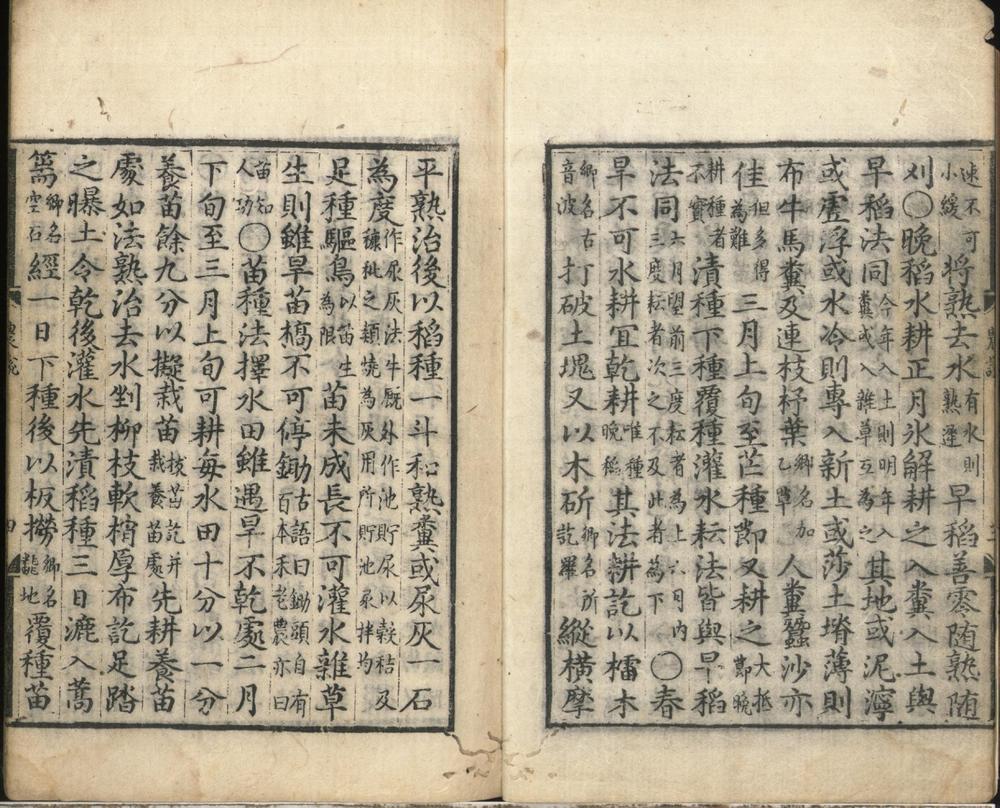 速不可小緩將熟去水有水則熟遲早稻善零随熟随
刈〇晩稻水耕正月氷解耕之入糞入土與
早稻法同今年入土則明年入糞或入雜草互為之其地或泥濘
或虚浮或水冷則專入新土或莎土塉薄則
布牛馬糞及連枝杼葉鄕名加乙草人糞蠶沙亦
佳但多得為難三月上旬至芒種節又耕之大抵節晩
耕種者不實漬種下種覆種灌水耘法皆與早稻
法同六月望前三度耘者為上六月內三度耘者次之不及此者為下〇春
旱不可水耕宜乾耕唯種晩稻其法耕訖以檑木
鄕名古音波打破土塊又以木斫鄕名所訖羅縱橫摩
平熟治後以稻種一斗和熟糞或尿灰一石
為度作尿灰法牛厩外作池貯尿以穀秸及穅秕之類燒為灰用所貯池尿拌均
足種驅鳥以苗生為限苗未成長不可灌水雜草
生則雖旱苗槁不可停鋤古語曰鋤頭自有百本禾老農亦曰
苗知人功〇苗種法擇水田雖遇旱不乾處二月
下旬至三月上旬可耕每水田十分以一分
養苗餘九分以擬栽苗拔苗訖并栽養苗處先耕養苗
處如法熟治去水剉柳枝軟梢厚布訖足踏
之曝土令乾後灌水先漬稻種三日漉入蒿
篅鄕名空石經一日下種後以板撈鄕名地覆種苗
農說
四